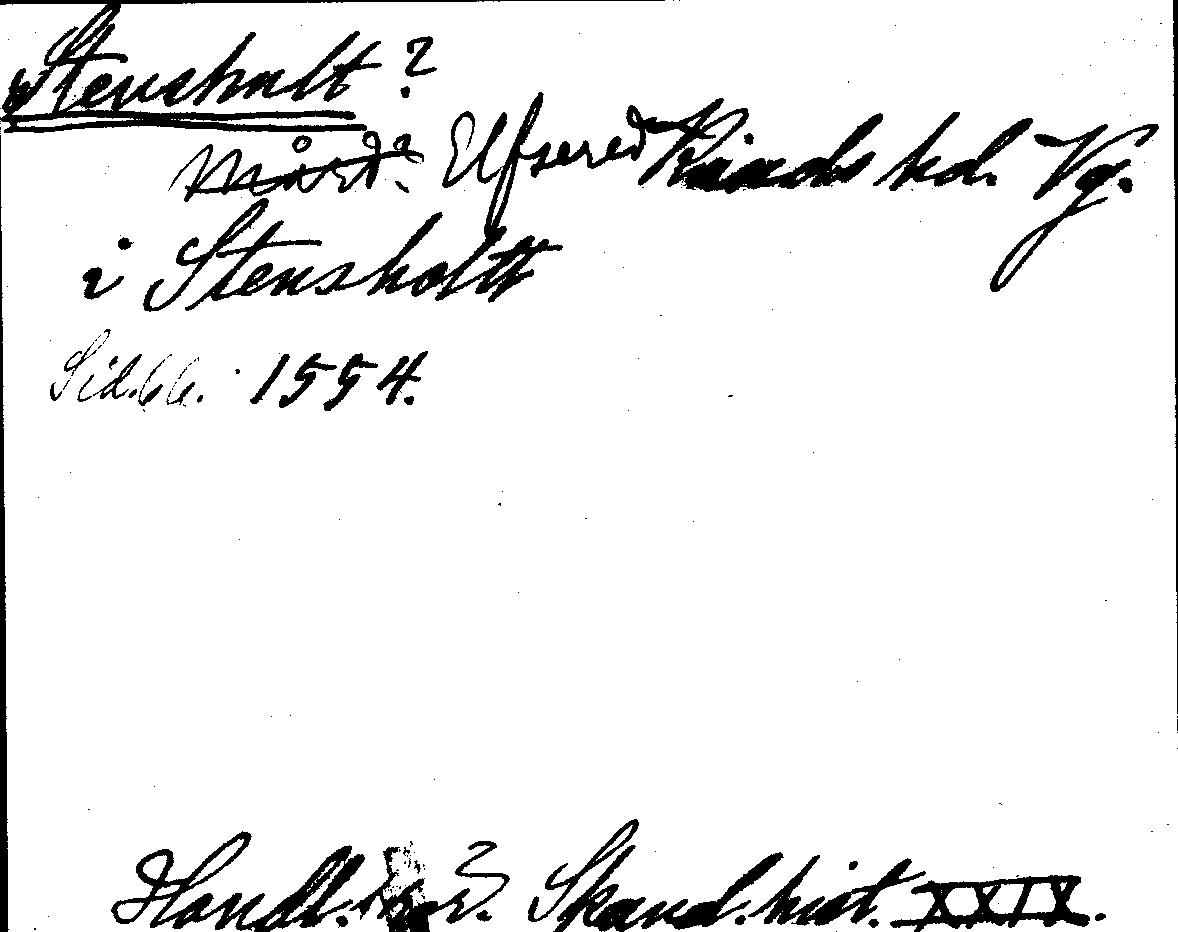 Stensholt?
Mård? Elfsered Kinds hd. Vg.
i Stensholtt
Sid. 66. 1554.
Handl. rör. Skand. hist. XXIX.